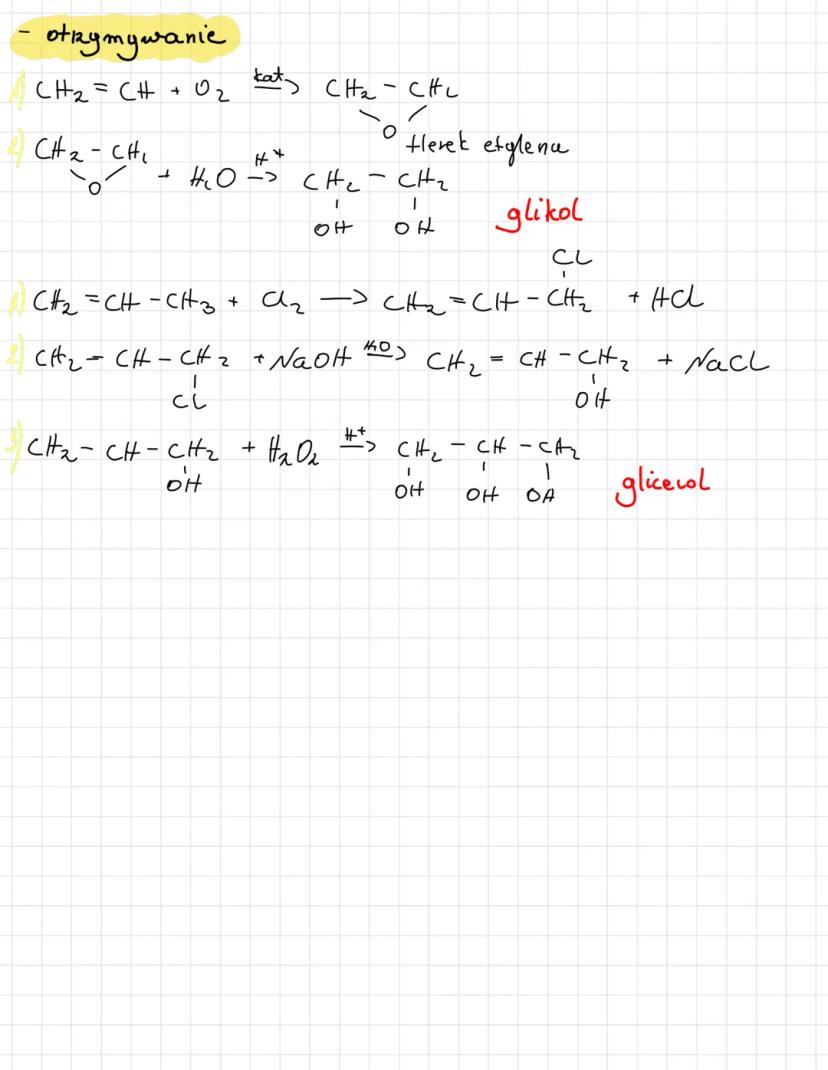 - otrzymywanie
1) CH₂ = CH + O₂ kat→ CH₂ - CH₂
O
tlenek etylenu
2) CH₂ - CH₂ + H₂O H⁺→ CH₂ - CH₂
O
OH OH
glikol
Cl
1) CH₂ = CH - CH₃ + Cl₂ → CH₂ = CH - CH₂ + HCl
2) CH₂ - CH - CH₂ + NaOH H₂O→ CH₂ = CH - CH₂ + NaCl
Cl OH
3) CH₂ - CH - CH₂ + H₂O₂ H⁺→ CH₂ - CH - CH₂
OH OH OH OH
glicerol